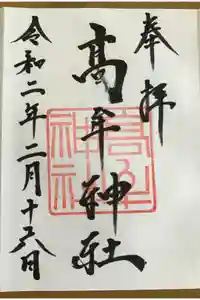 奉拝
髙牟神社
高牟
神社
令和二年二月十六日